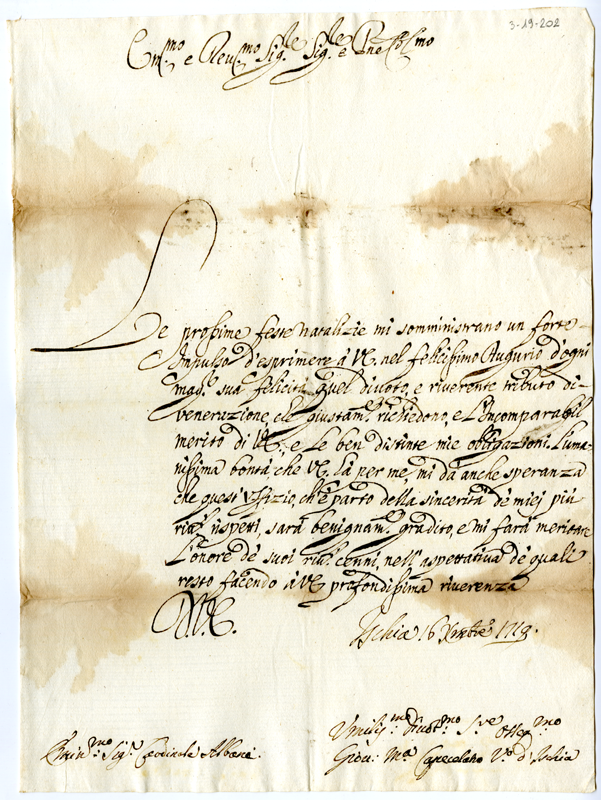 3-19-202
Em.mo e Rev.mo Sig.re Sig.re e Pne Col.mo
Le prossime feste natalizie mi somministrano un forte
Impulso d'esprimere à VE. nel felicissimo Augurio d'ogni
magg. sua felicità quel divoto, e riverente tributo di
venerazione, che giustam. richiedono, e L'incomparabil
merito di VE., e Le ben distinte mie obligazioni. L'uma-
nissima bontà che VE. hà per me, mi dà anche speranza
che quest'Uffizio, ch'è parto della sincerità de miei più
riv. rispetti, sarà benignam. gradito, e mi farà meritare
L'onore de suoi riv. cenni, nell'aspettativa de quali
resto facendo à VE profondissima riverenza
D.V.E.
Ischia 16 Xmbre 1719.
Umiliss.mo Devot.mo S.re Osseq.mo
Emin.mo Sig.r Cardinale Albani.
Giov: M.a Capecelatro V.o d'Ischia